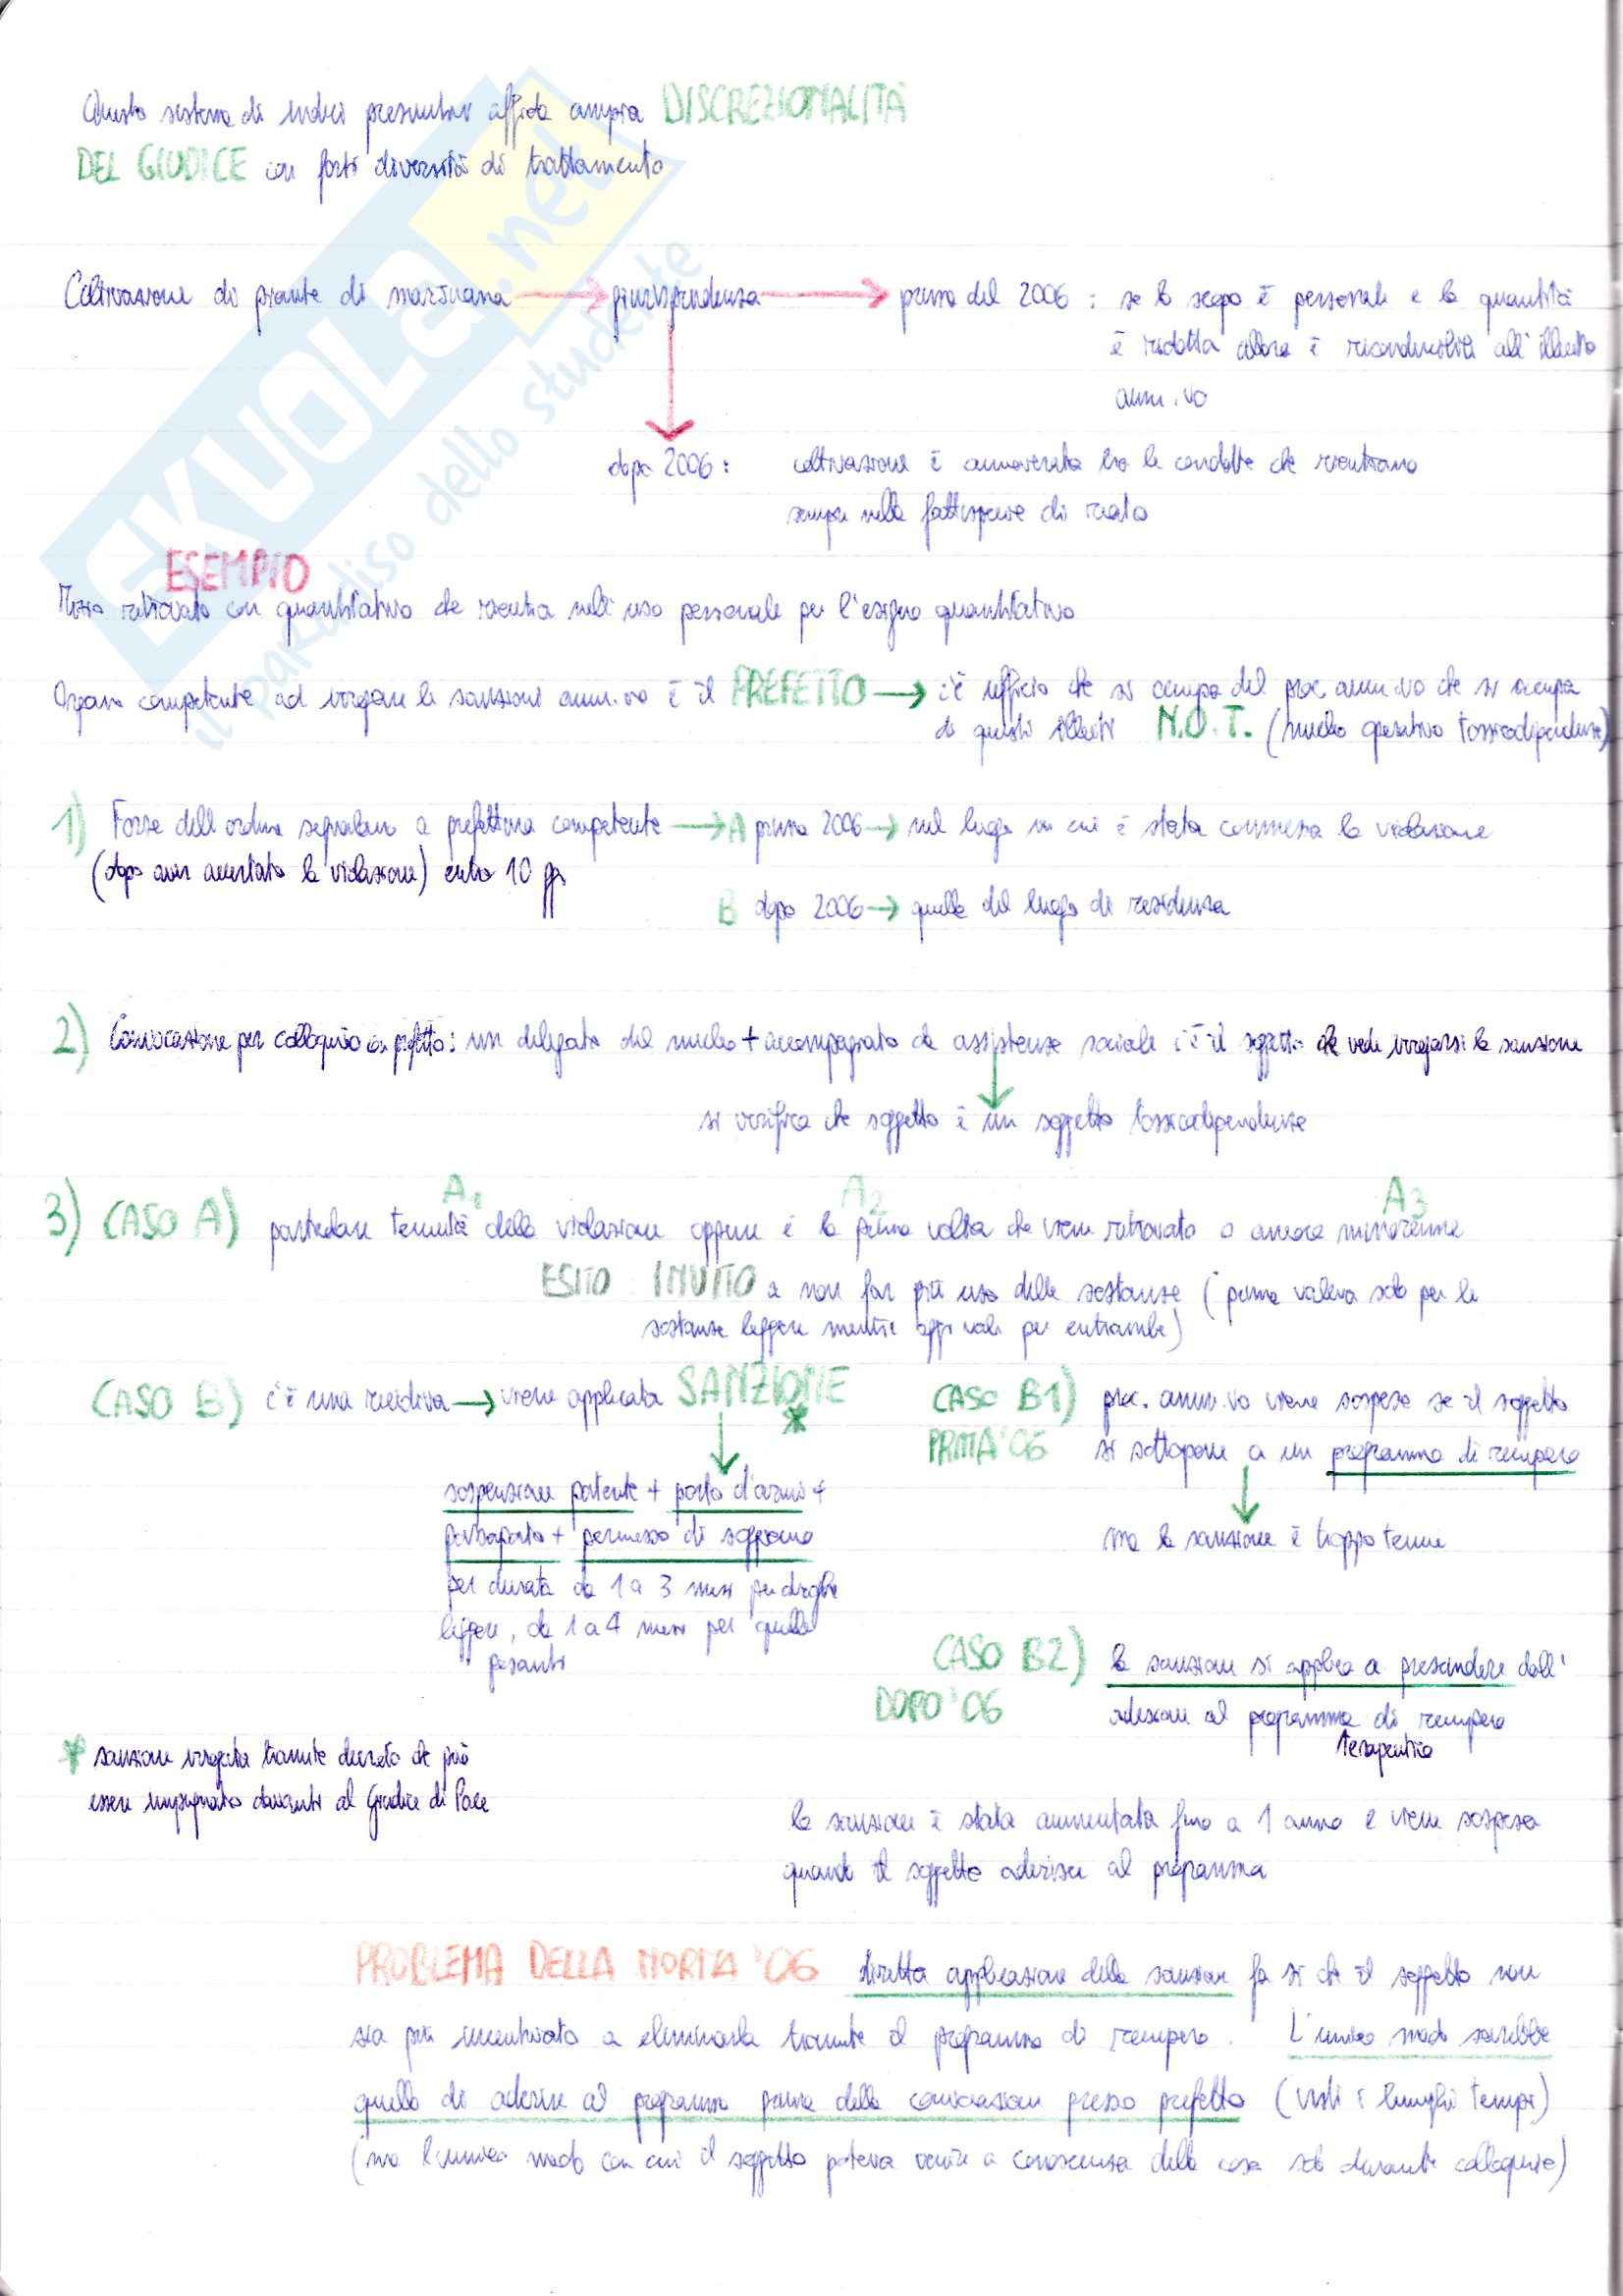 Questo sistema di indici presuntivi affida ampia DISCREZIONALITÀ
DEL GIUDICE con forti diversità di trattamento
Coltivazione di piante di marijuana → giurisprudenza → prima del 2006 : se lo scopo è personale e la quantità
è ridotta allora è riconducibile all'illecito
amm.vo
dopo 2006 : coltivazione è annoverata tra le condotte che rientrano
sempre nella fattispecie di reato
ESEMPIO
ritrovato con quantitativo che rientra nell'uso personale per l'esiguo quantitativo
Organo competente ad irrogare le sanzioni amm.vo è il PREFETTO → c'è ufficio che si occupa del proc. amm.vo che si occupa
di questi illeciti N.O.T. (nucleo operativo tossicodipendenze)
1) Forze dell'ordine segnalano a prefettura competente → A prima 2006 → nel luogo in cui è stata commessa la violazione
(dopo aver accertato la violazione) entro 10 gg
B dopo 2006 → quella del luogo di residenza
2) Convocazione per colloquio con prefetto : un delegato del nucleo + accompagnato da assistente sociale c'è il soggetto che vede irrogarsi la sanzione
si verifica che soggetto è un soggetto tossicodipendente
A1 A2 A3
3) CASO A) particolare tenuità della violazione oppure è la prima volta che viene ritrovato o ancora minorenne
ESITO : INVITO a non far più uso delle sostanze (prima valeva solo per le
sostanze leggere mentre oggi vale per entrambe)
CASO B) c'è una recidiva → viene applicata SANZIONE *
sospensione patente + porto d'armi +
passaporto + permesso di soggiorno
per durata da 1 a 3 mesi per droghe
leggere, da 1 a 4 mesi per quelle
pesanti
CASO B1) proc. amm.vo viene sospeso se il soggetto
PRIMA '06 si sottopone a un programma di recupero
ma la sanzione è troppo tenue
CASO B2) la sanzione si applica a prescindere dall'
DOPO '06 adesione al programma di recupero
terapeutico
* sanzione irrogata tramite decreto che può
essere impugnato davanti al Giudice di Pace
la sanzione è stata aumentata fino a 1 anno e viene sospesa
quando il soggetto aderisce al programma
PROBLEMA DELLA NORMA '06 diretta applicazione della sanzione fa sì che il soggetto non
sia più incentivato a eliminarla tramite il programma di recupero. L'unico modo sarebbe
quello di aderire al programma prima della convocazione presso prefetto (visti i lunghi tempi)
(ma l'unico modo con cui il soggetto poteva venire a conoscenza della cosa solo durante colloquio)
SKUOLA.net
il paradiso dello studente